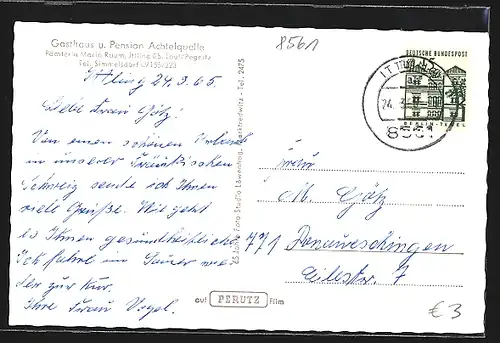 8561
Gasthaus u. Pension Achtelquelle
Pächterin Maria Raum, Ittling 65, Lauf/Pegnitz
Tel. Simmelsdorf
Ittling 24.3.65.
Liebe Frau Götz!
Von einem schönen Urlaub
in unserer Fränkischen
Schweiz sende ich Ihnen
viele Grüße. Wie geht
es Ihnen gesundheitlich
Ich fahre im
der zur Kur.
Ihre Frau Vogel.
Foto-Studio Löwenhag, Marktredwitz - Tel. 2475
auf PERUTZ Film
DEUTSCHE BUNDESPOST
BERLIN-TEGEL
ITTLING
24.3.
8561
Frau
M. Götz
771 Donaueschingen
7
€3